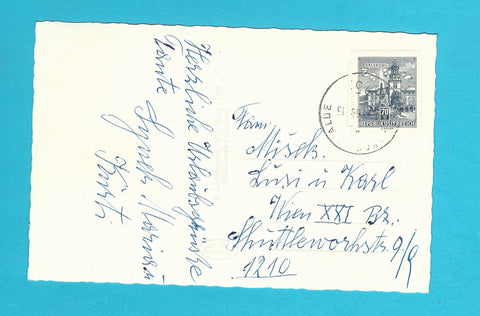 Herzliche Urlaubsgrüsse
Tante
Kurti
Fam.
Misek
Lusi u Karl
Wien XXI Bz.
Shuttleworthstr. 9/9
1210
SALZBURG
70
REPUBLIK ÖSTERREICH
WALDE